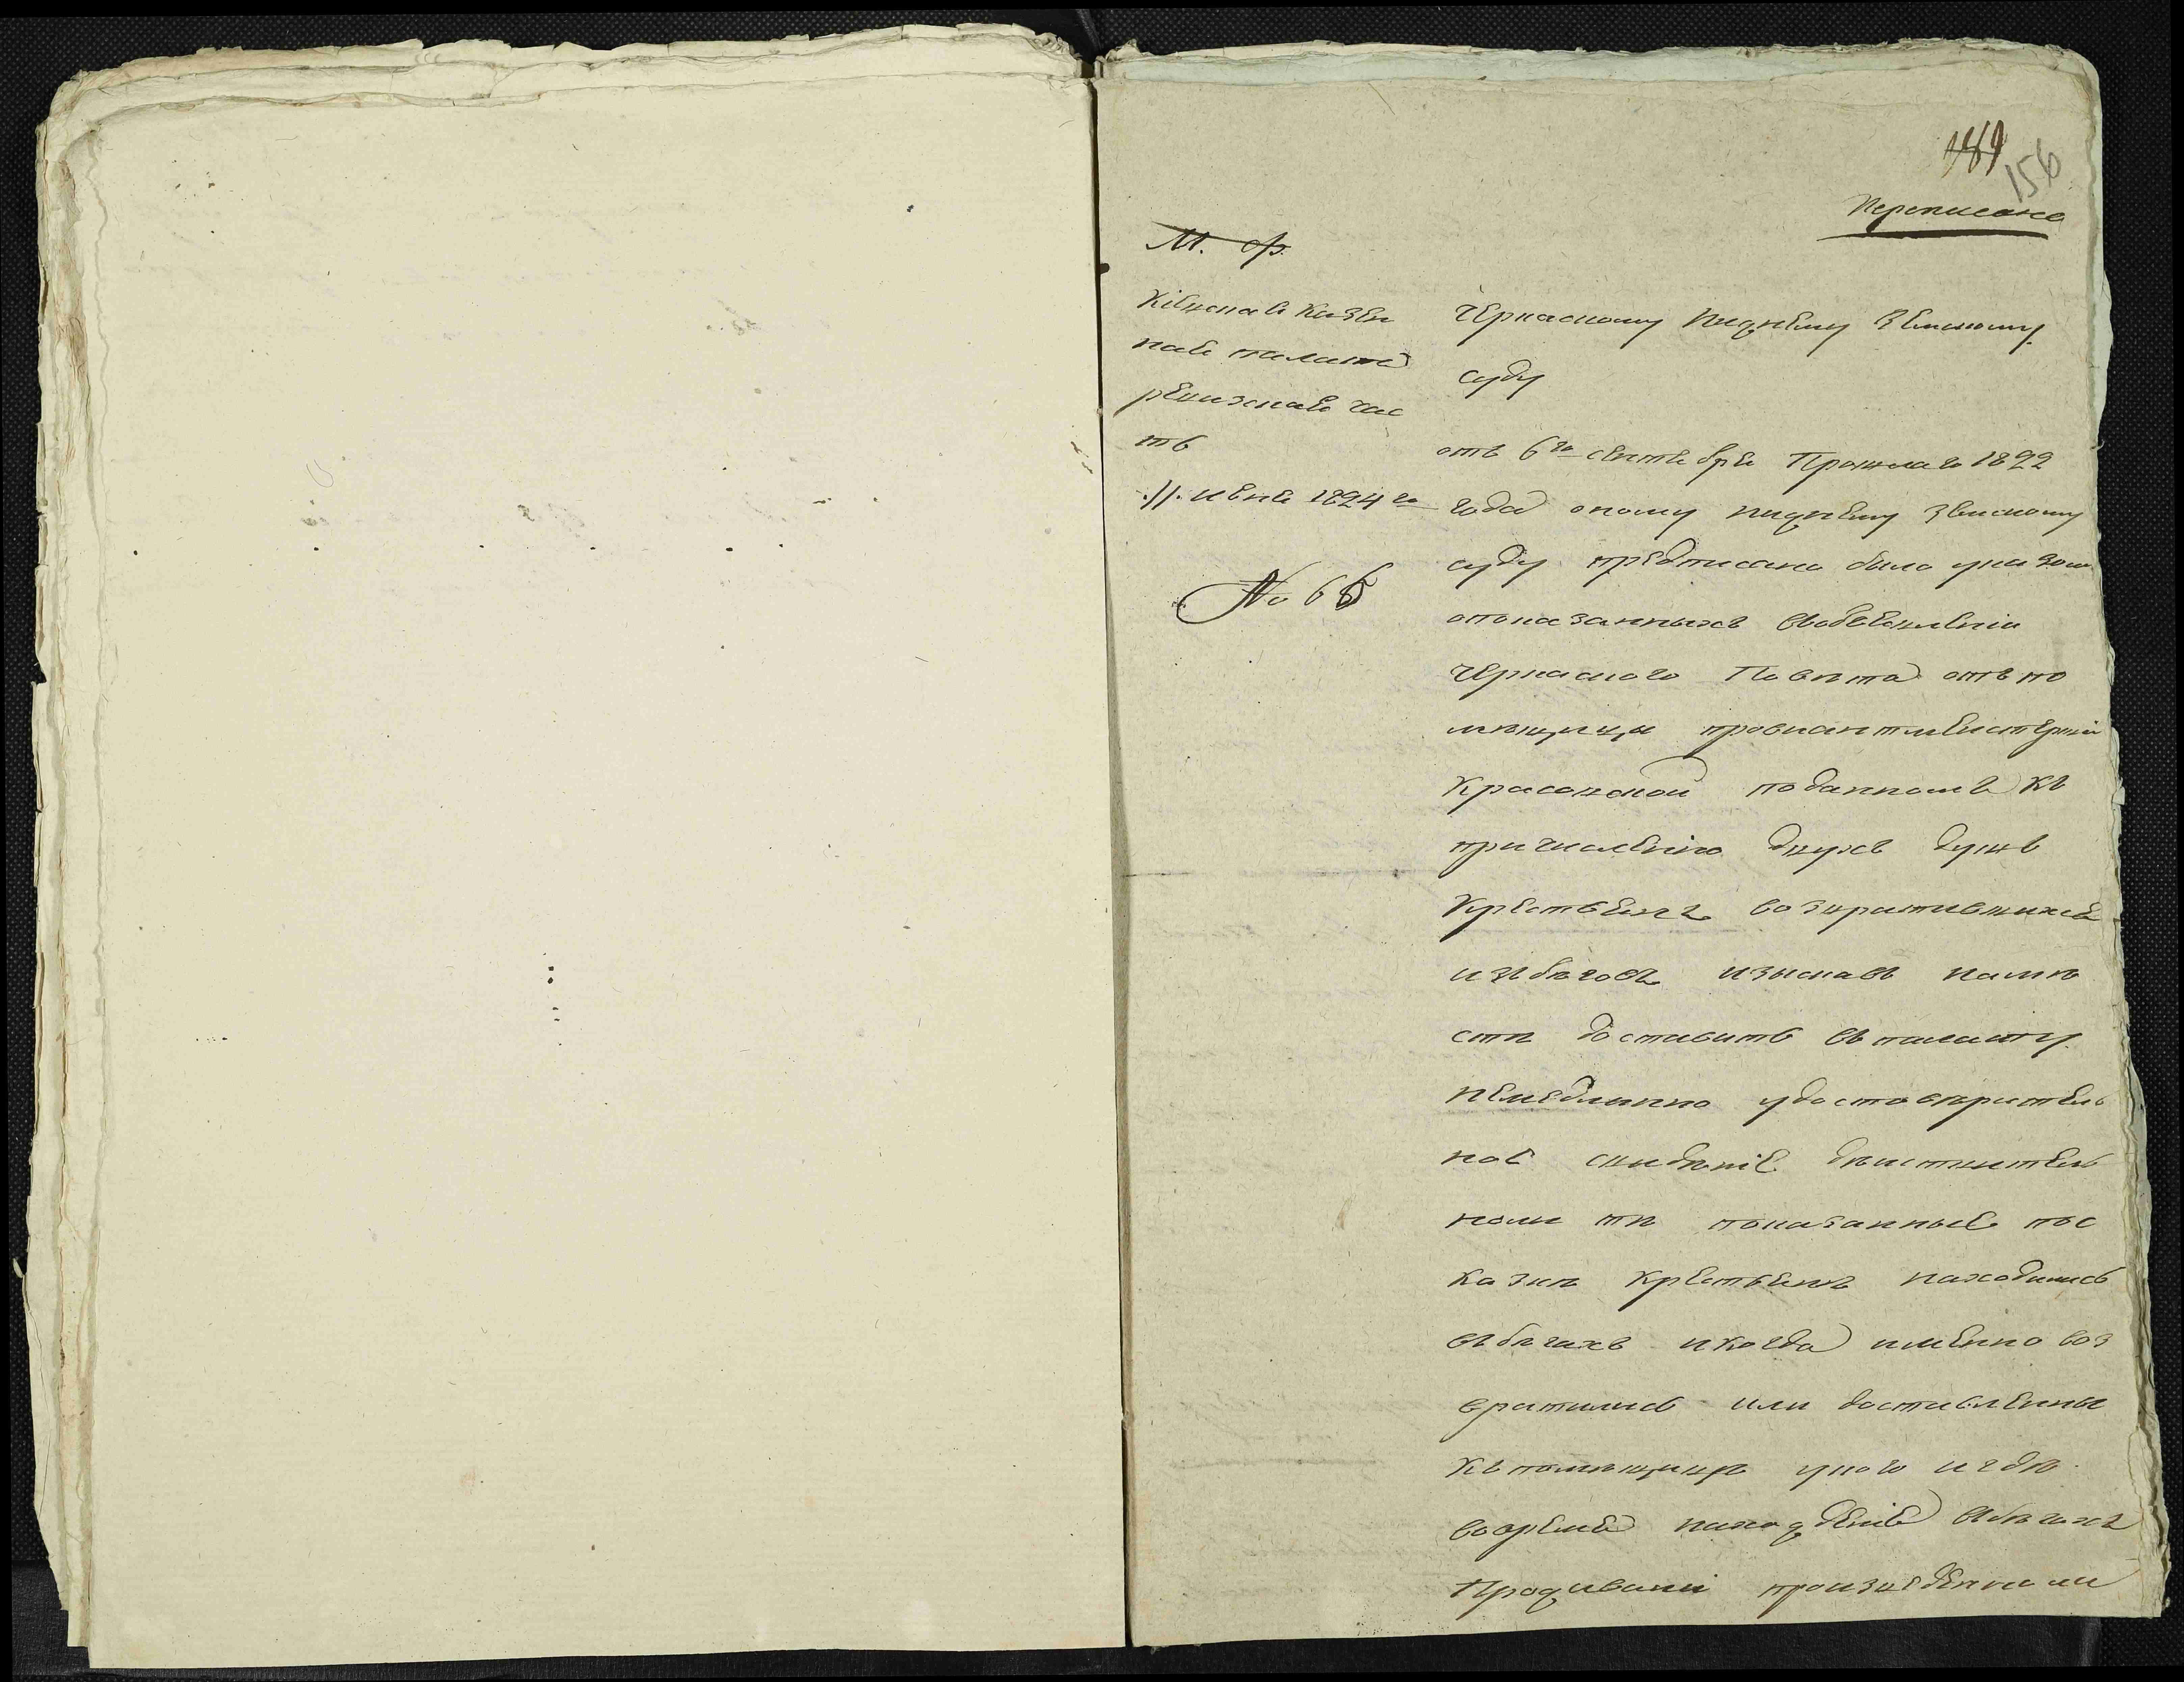 189
156
Переписано
М. Ф.
Кіевская Казен
ная палата
ревизская час
ть
11. июня 1824 го
№ 66
Черкаскому Нижнему Земскому
суду
отъ 6го сентября Прошлаго 1822
года оному нижнему Земскому
суду предписано было указом
о показанныхъ въобъявленіи
Черкаского Повѣта отъ по
мѣщицы провиантмейстерши
Красовской поданномъ къ
причисленію двухъ душъ
Крестьянъ возвратившихся
изъ бѣговъ изыскавъ намѣ
стѣ доставить въ палату
немедлинно удостовѣритель
ное сведѣніе дѣиствитель
ноли тѣ показанные пос
казкѣ крестьянъ находились
въбѣгахъ икогда именно воз
вратились или доставлены
Къ помѣщицѣ укого и гдѣ
вовремя нахождения въбѣгахъ
Проживали произведеннали